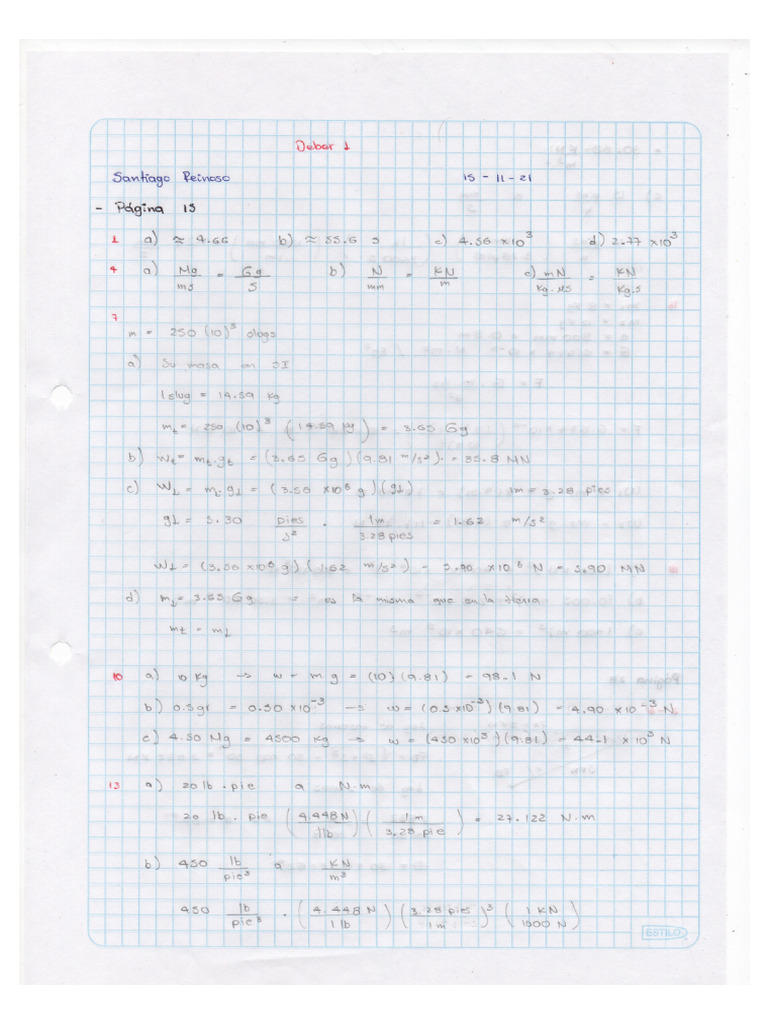 Deber 1
Santiago Reinoso 15 - 11 - 21
- Página 15
1 a) ≈ 4.66 b) ≈ 55.6 s c) 4.56 x10³ d) 2.77 x10³
4 a) Mg/ms = Gg/s b) N/mm = KN/m c) mN/Kg.μs = KN/Kg.s
7
m = 250 (10)³ slogs
a) Su masa en SI
1 slug = 14.59 kg
mt = 250 (10)³ (14.59 kg) = 3.65 Gg
b) Wt = mt.gt = (3.65 Gg)(9.81 m/s²) = 35.8 MN
c) WL = mL.gL = (3.56 x10⁶ g)(gL) 1m = 3.28 pies
gL = 5.30 pies/s² . 1m/3.28 pies = 1.62 m/s²
WL = (3.56 x10⁶ g)(1.62 m/s²) = 5.90 x10⁶ N = 5.90 MN
d) mL = 3.65 Gg = es la misma que en la tierra
mt = mL
10 a) 10 Kg → w = m.g = (10)(9.81) = 98.1 N
b) 0.5gr = 0.50 x10⁻³ → w = (0.5x10⁻³)(9.81) = 4.90 x10⁻³ N
c) 4.50 Mg = 4500 kg → w = (450 x10³)(9.81) = 44.1 x10³ N
13 a) 20 lb . pie a N.m
20 lb . pie (4.448 N/1 lb)(1 m/3.28 pie) = 27.122 N.m
b) 450 lb/pie³ a KN/m³
450 lb/pie³ . (4.448 N/1 lb)(3.28 pies/1 m)³(1 KN/1000 N)
ESTILO